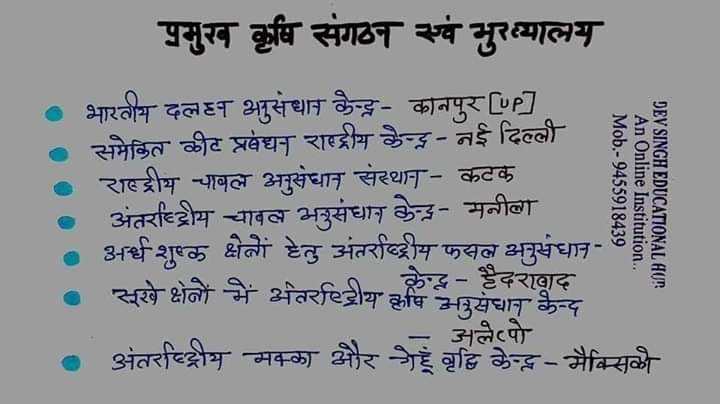 प्रमुख कृषि संगठन एवं मुख्यालय
भारतीय दलहन अनुसंधान केन्द्र - कानपुर [UP]
समेकित कीट प्रबंधन राष्ट्रीय केन्द्र - नई दिल्ली
राष्ट्रीय चावल अनुसंधान संस्थान - कटक
अंतर्राष्ट्रीय चावल अनुसंधान केन्द्र - मनीला
अर्ध शुष्क क्षेत्रों हेतु अंतर्राष्ट्रीय फसल अनुसंधान -
केन्द्र - हैदराबाद
सूखे क्षेत्रों में अंतर्राष्ट्रीय कृषि अनुसंधान केन्द्र
- अलेप्पो
अंतर्राष्ट्रीय मक्का और गेहूं वृद्धि केन्द्र - मैक्सिको
DEV SINGH EDUCATIONAL HUB
An Online Institution..
Mob:- 9455918439